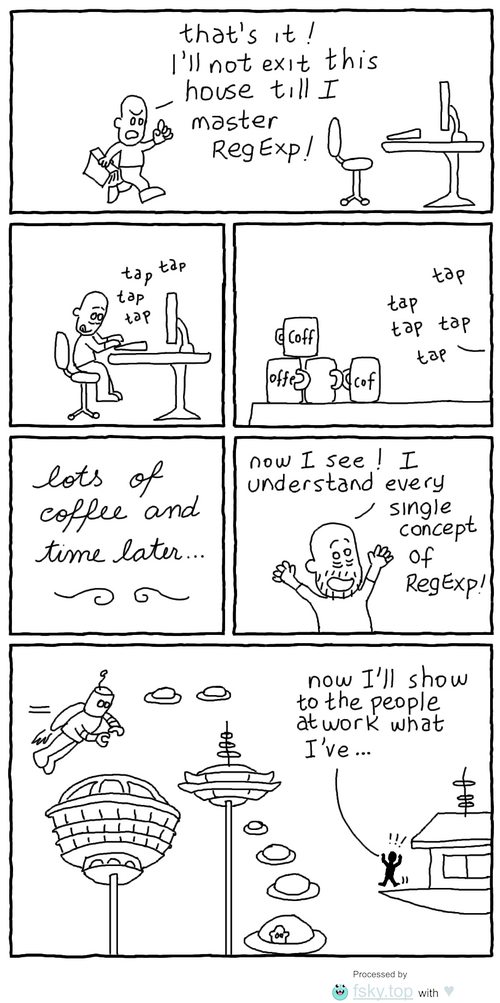 that's it!
I'll not exit this
house till I
master
RegExp!
tap tap
tap
tap
Coff
offe
cof
tap
tap
tap tap
tap
lots of
coffee and
time later...
now I see! I
understand every
single
concept
of
RegExp!
now I'll show
to the people
at work what
I've...
!!!
Processed by
fsky.top with ♥